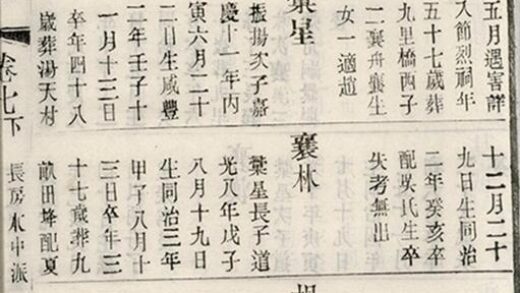 五月遇害詳
入節烈祠年
五十七歲葬
九里橋西子
二襄舟襄生
女一適趙
棻星
振揚次子嘉
慶十一年丙
寅六月二十
二日生咸豐
二年壬子十
一月十三日
卒年四十八
歲葬湯天村
十二月二十
九日生同治
二年癸亥卒
配吳氏生卒
失考無出
襄林
棻星長子道
光八年戊子
八月十九日
生同治三年
甲子八月十
三日卒年三
十七歲葬九
畝田埄配夏
卷七下
長房水中派